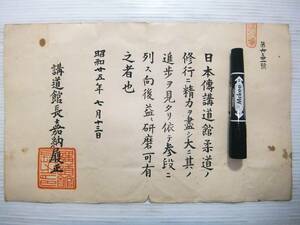 日本傳講道館柔道ノ
修行ニ精力ヲ盡シ大ニ其ノ
進歩ヲ見タリ依テ参段ニ
列ス向後益々研磨可有
之者也
昭和廿五年七月十三日
講道館長嘉納履正